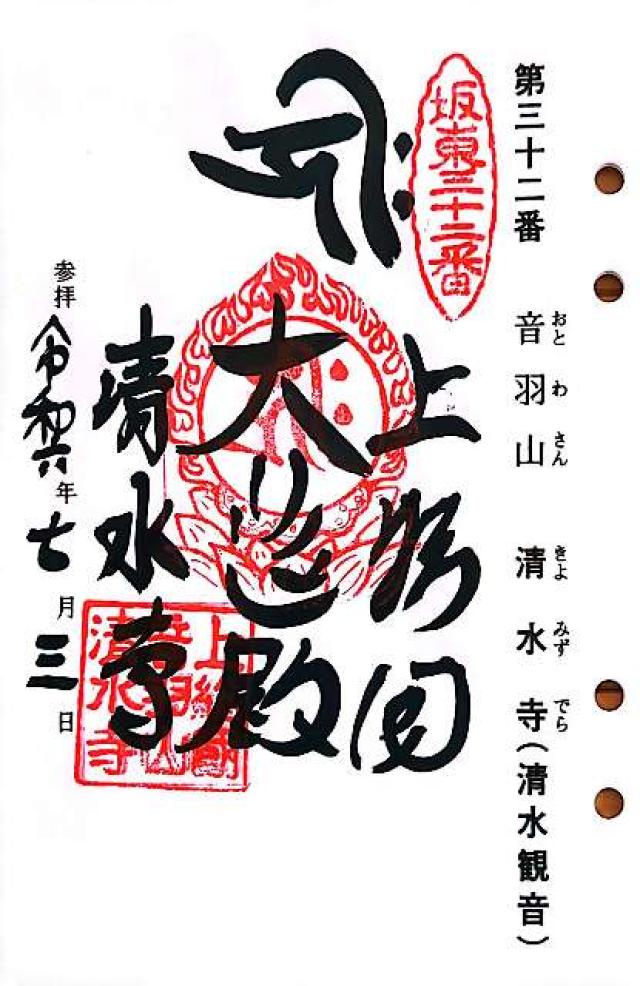 第三十二番 音羽山 清水寺(清水観音)
おとわさん きよみずでら
坂東三十二番
上総国
大悲殿
清水寺
参拝 令和六年七月三日
上総国
音羽山
清水寺